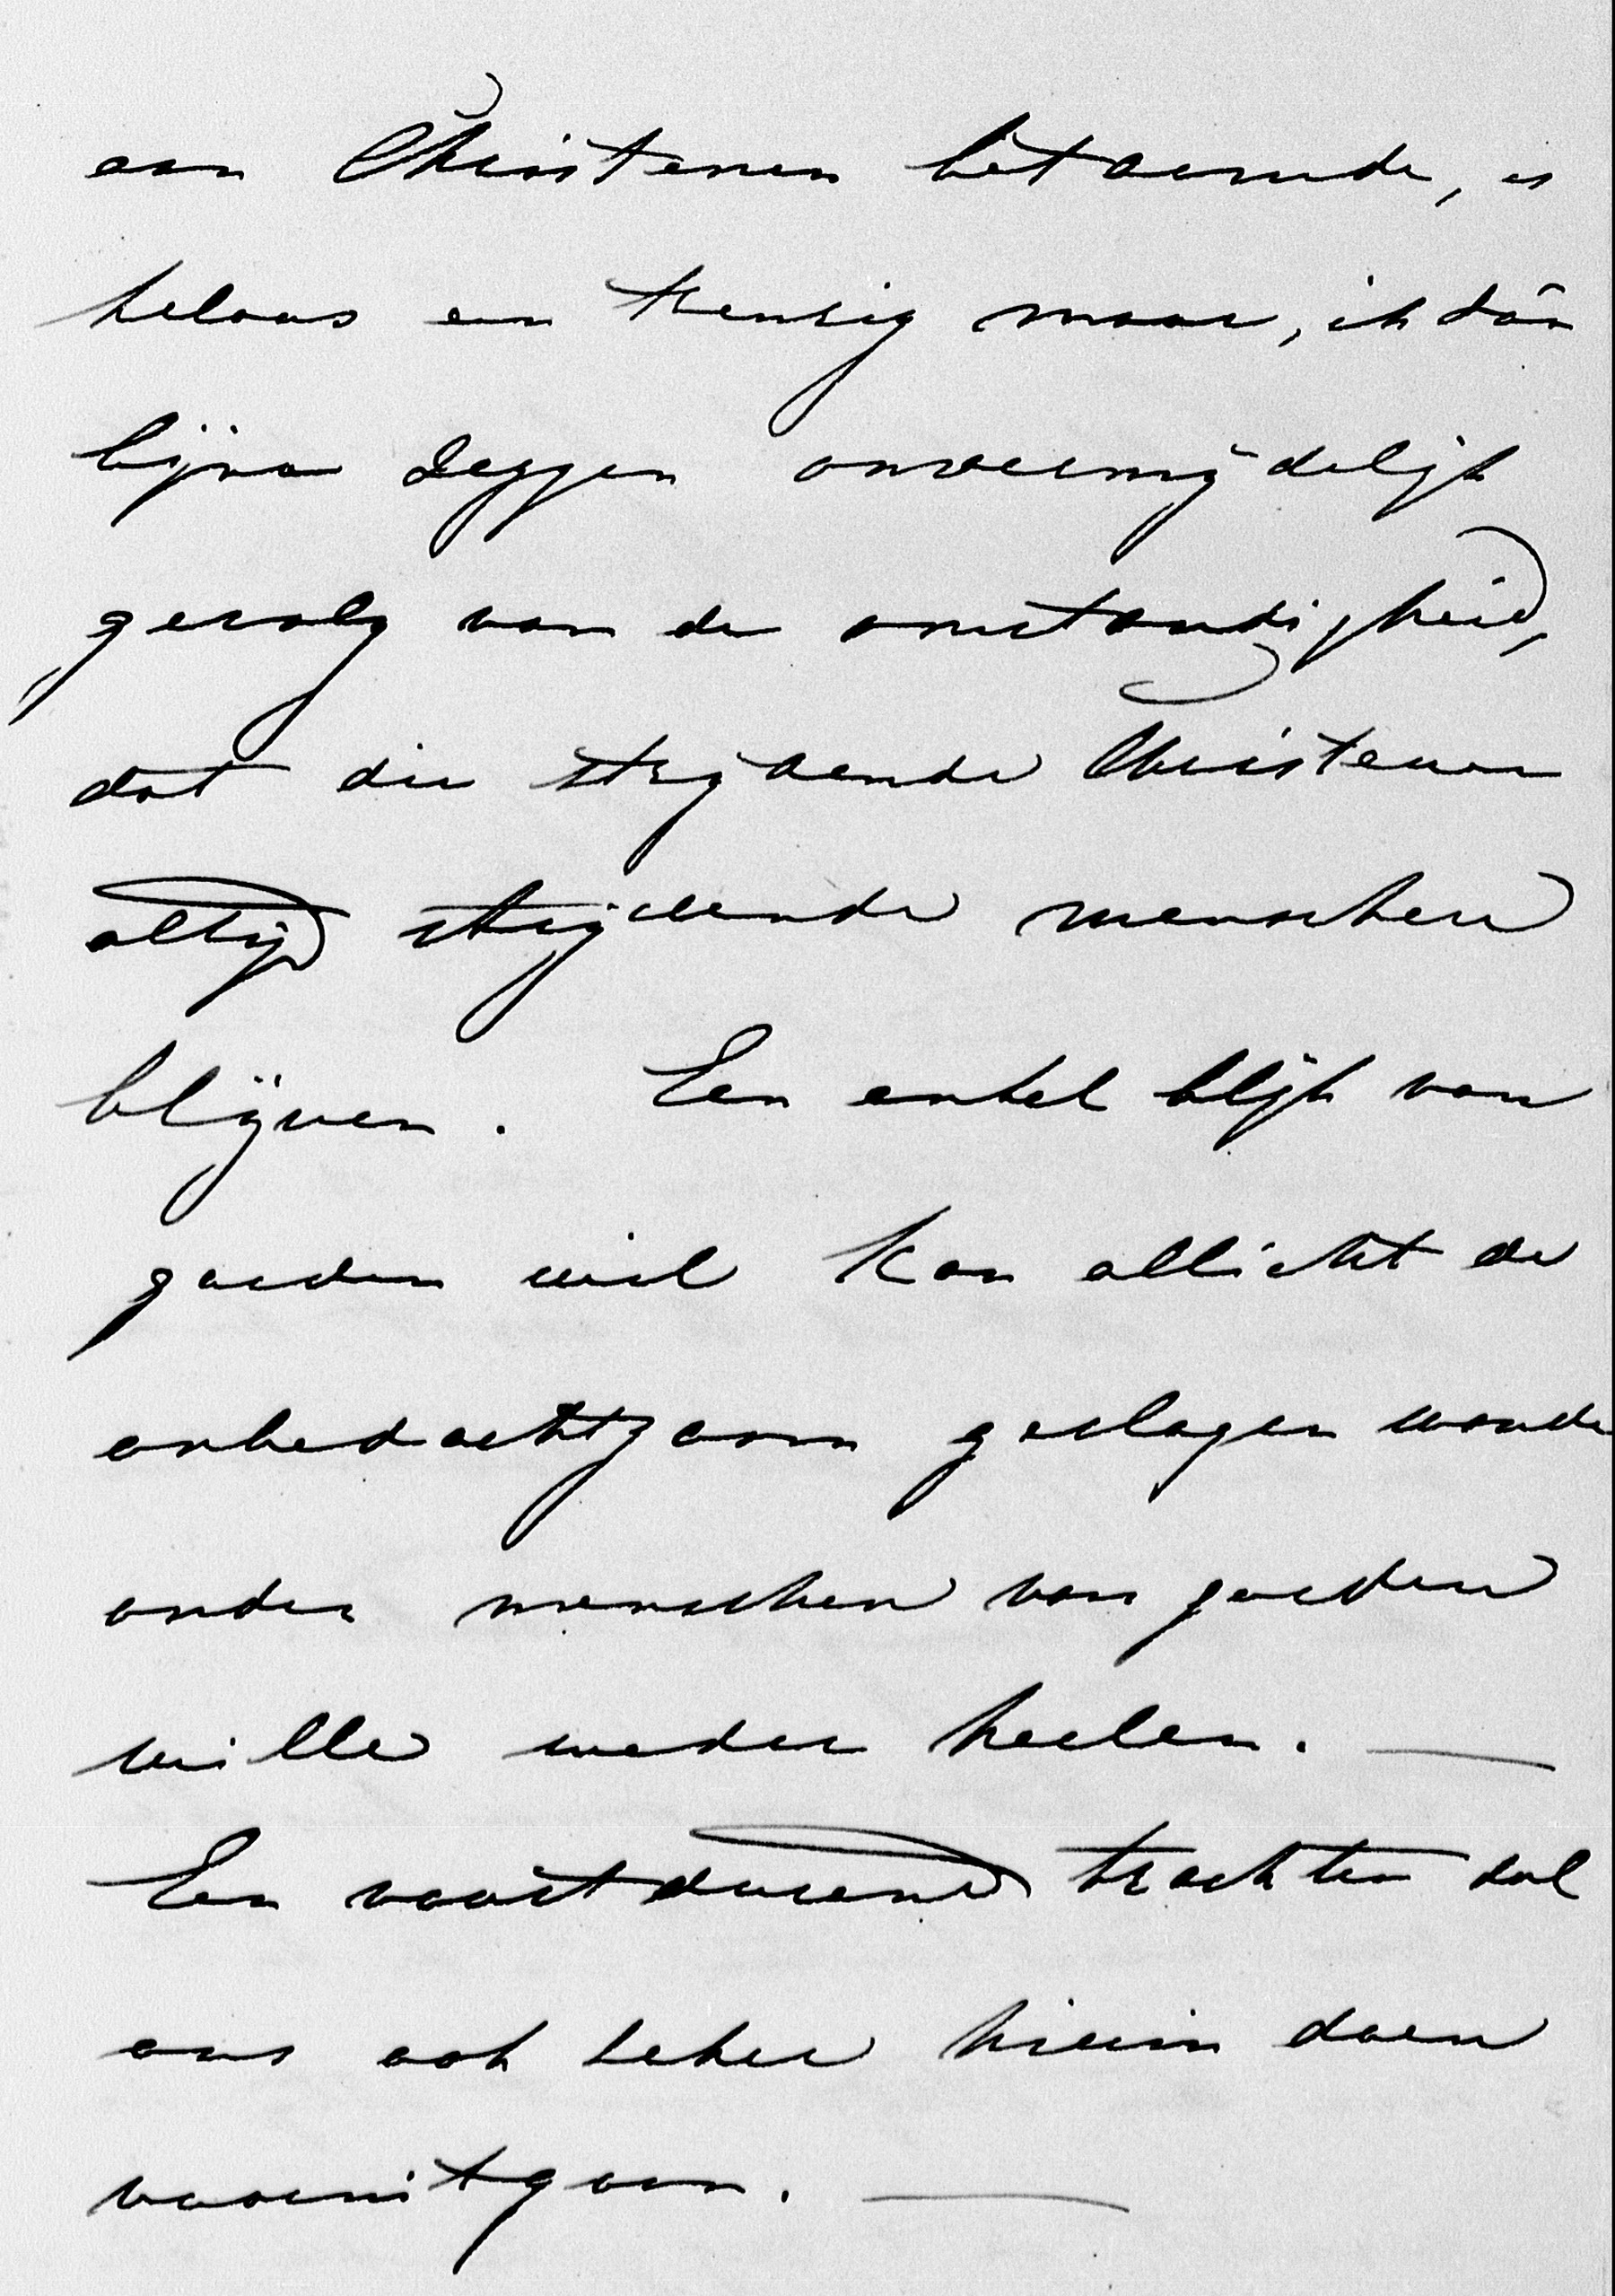 aan Christenen betaamde, is
helaas een treurig maar, ik zou
bijna zeggen onvermijdelijk
gevolg van de omstandigheid,
dat die strijdende Christenen
altijd strijdende menschen
blijven. Een enkel blijk van
goeden wil kan allicht de
onbedachtzaam geslagen wonde
onder menschen van goeden
wille weder heelen. —
Een voortdurend trachten zal
ons ook zeker hierin doen
vooruitgaan. —